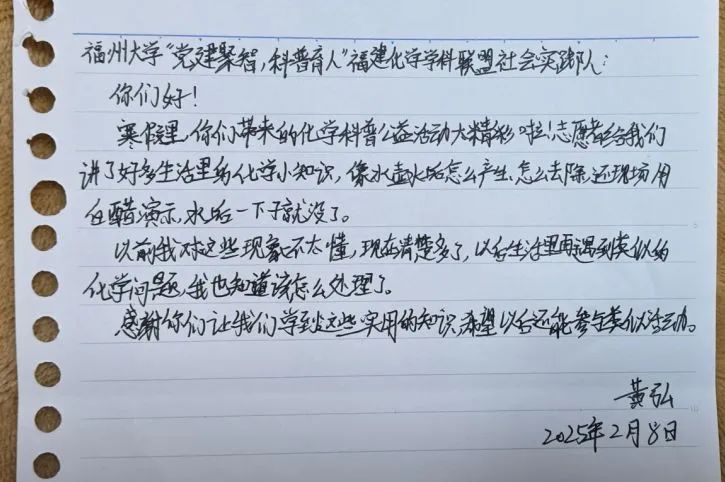 福州大学“党建聚智,科普育人”福建化学学科联盟社会实践队:
你们好!
寒假里,你们带来的化学科普公益活动太精彩啦!志愿者给我们
讲了好多生活里的化学小知识,像水壶水垢怎么产生、怎么去除,还现场用
白醋演示,水垢一下子就没了。
以前我对这些现象不太懂,现在清楚多了,以后生活里再遇到类似的
化学问题,我也知道该怎么处理了。
感谢你们让我们学到这些实用的知识,希望以后还能参与类似活动。
黄弘
2025年2月8日